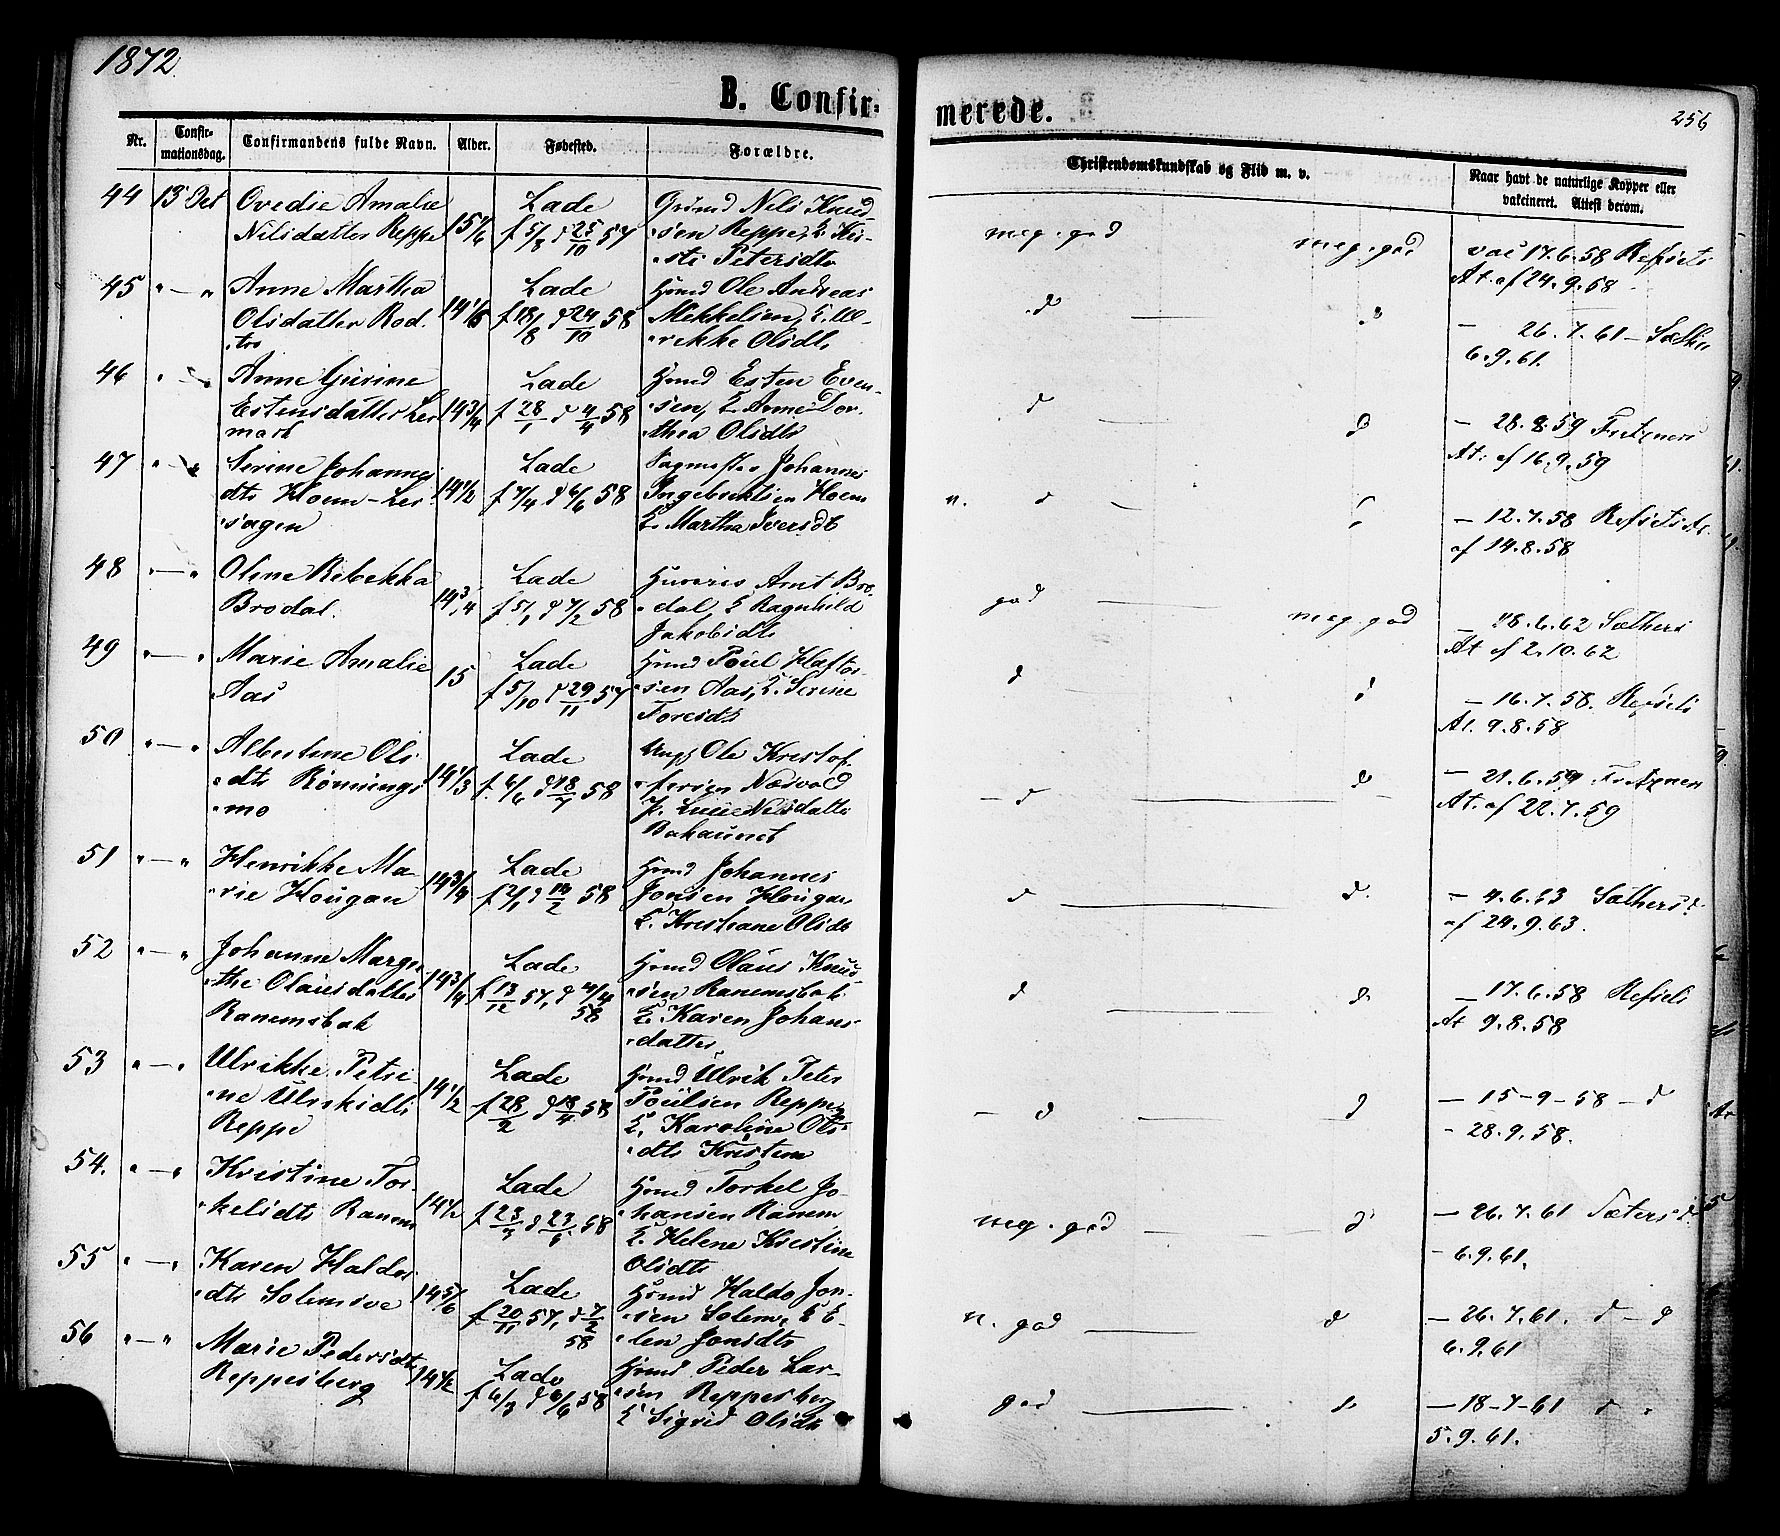 1872.
B. Confir-
merede.
256
Nr.
Confir-
mationsdag.
Confirmandens fulde Navn.
Alder.
Fødested.
Forældre.
Christendomskundskab og Flid m. v.
Naar havt de naturlige Kopper eller
vakcineret. Attest derom.
44 13 Oct Ovedie Amalie
Nilsdatter Reppe
15 1/6
Lade
f 5/8 d 25/10 57
Nils Knud-
sen Reppe, E. Kir-
sti Petersdtr
meg. god
meg. god
vac 17.6.58 Refsets
At. af 24.9.58
45 " — " Anne Martha
Olsdatter Rod-
tro
14 1/6
Lade
f 18/8 d 24/10 58
Gmd Ole Andreas
Mekkelsen, E. Ul-
rikke Olsdtr
d — "
— 26.7.61 — Sæther
6.9.61.
46 " — " Anne Gurine
Estensdatter Ler
mark
14 3/4
Lade
f 28/1 d 4/4 58
Hmd Esten Even-
sen, E. Anne Dor-
thea Olsdtr
d
d
— 28.8.59 Fritzners
At. af 16.9.59
47 " — " Serine Johannes
dtr Hoem - Ler
sagen
14 1/2
Lade
f 7/4 d 6/6 58
Sagmester Johannes
Ingebrektsen Hoem
E. Martha Iversdt
n. d —
— 12.7.58 Refsets At.
af 14.8.58
48 " — " Oline Rebekka
Brodal.
14 3/4
Lade
f 5/1 d 7/2 58
Arnt Bro-
dal, E Ragnhild
Jakobsdtr
god —
meg. god
— 18.6.62 Sæthers
At af 2.10.62
49 " — " Marie Amalie
Aas
15
Lade
f 5/10 d 29/11 57
Hmd Poul Hafto-
sen Aas, E. Serine
Toresdtr
d
d
— 16.7.58. Refsets
At. 9.8.58
50 " — " Albertine Ols
dtr Rønnings
mo
14 1/3
Lade
f. 6/6 d 18/7 58
Ungk Ole Kristof-
fersen Næsvold
P. Lucie Nilsdatter
Bakaunet
— d —
d
— 21.6.59 Fritzners
At. af 22.7.59
51 " — " Henrikke Ma-
rie Hougan
14 3/4
Lade
f 2/1 d 14/2 58
Hmd Johannes
Jonsen Hougan
E. Kristiane Olsdt
d —
d.
— 4.6.63 Sæthers
af 24.9.63.
52 " — " Johanne Margre-
the Olausdatter
Ranemsbak
14 3/4
Lade
f 13/12 57, d 4/4
58
Hmd Olaus Knud
sen Ranemsbak
E. Karen Johans-
datter
d —
d.
— 17.6.58 Refsets
At 9.8.58
53 " — " Ulrikke Petri-
ne Ulriksdtr
Reppe
14 1/2
Lade
f 28/2 d 18/4 58
Hmd Ulrik Peter
Poulsen Reppe
E. Karoline Ols
dtr
— d —
d
— 15-9-58 — d
- 28.9.58.
54. " — " Kristine Tor-
kelsdtr Ranem
14 1/2
Lade
f 23/3 d 23/5 58
Hmd Torkel Jo-
hansen Ranem
E. Helene Kristine
Olsdtr
meg. god —
d
— 26.7.61 Sæters
- 6.9.61.
55 " — " Karen Haldo
dtr Solemsve
14 5/6
Lade
f 20/11 57, d 7/2
58
Hmd Haldo Jon-
sen Solem, E E-
len Jonsdtr
n. god —
d
— 26.7.61. d — d
6.9.61
56 " — " Marie Pedersdtr
Reppesberg
14 1/2
Lade
f 6/3 d 6/6 58
Hmd Peder Lar-
sen Reppesberg
E Sigrid Olsdtr
god —
d
— 18-7-61 d
5.9.61.